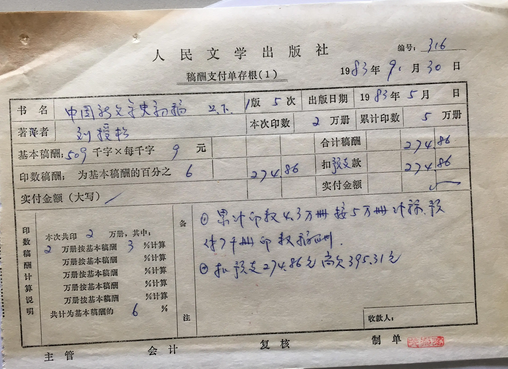 人民文学出版社
编号：316
稿酬支付单存根(1)
1983年9月30日
书名 中国新文学史初稿 上.下. 1版5次 出版日期 1983年5月 日
著译者 刘授松 本次印数 2万册 累计印数 5万册
基本稿酬：509千字×每千字 9 元 合计稿酬 274.86
印数稿酬：为基本稿酬的百分之 6 274.86 扣预支款 274.86
实付金额(大写) 实付金额
印数稿酬计算说明
本次共印2万册，其中：
2万册按基本稿酬3%计算
万册按基本稿酬 %计算
万册按基本稿酬 %计算
万册按基本稿酬 %计算
万册按基本稿酬 %计算
共计为基本稿酬的 6 %
备注
① 累计印数4.3万册按5万册计标.预
付7千册印数稿酬.
② 扣预支274.86元尚欠395.31元
收款人：
主管 会计 复核 制单